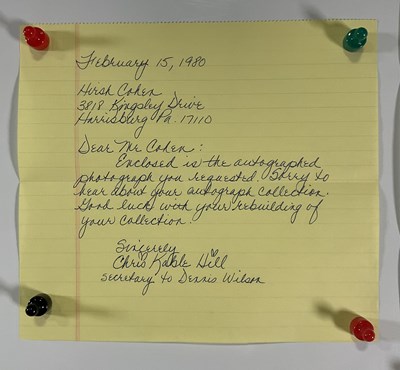 February 15, 1980
Hirsh Cohen
3818 Kingsley Drive
Harrisburg Pa. 17110
Dear Mr Cohen:
Enclosed is the autographed
photograph you requested. Sorry to
hear about your autograph collection.
Good luck with your rebuilding of
your collection.
Sincerely
Chris Kable Hill
Secretary to Dennis Wilson